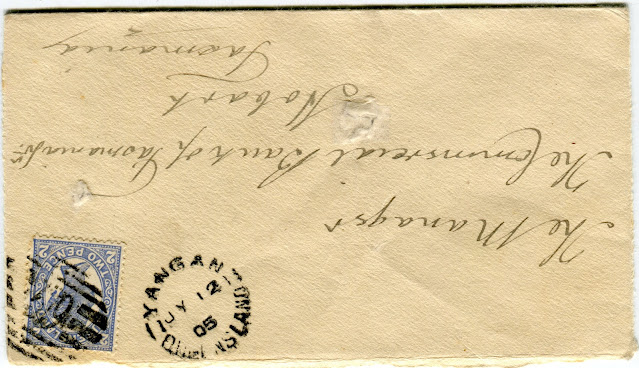 The Manager
The Commercial Bank of Tasmania Ltd.
Hobart
Tasmania
TWO PENCE
2
2
YANGAN
JY 12
05
QUEENSLAND